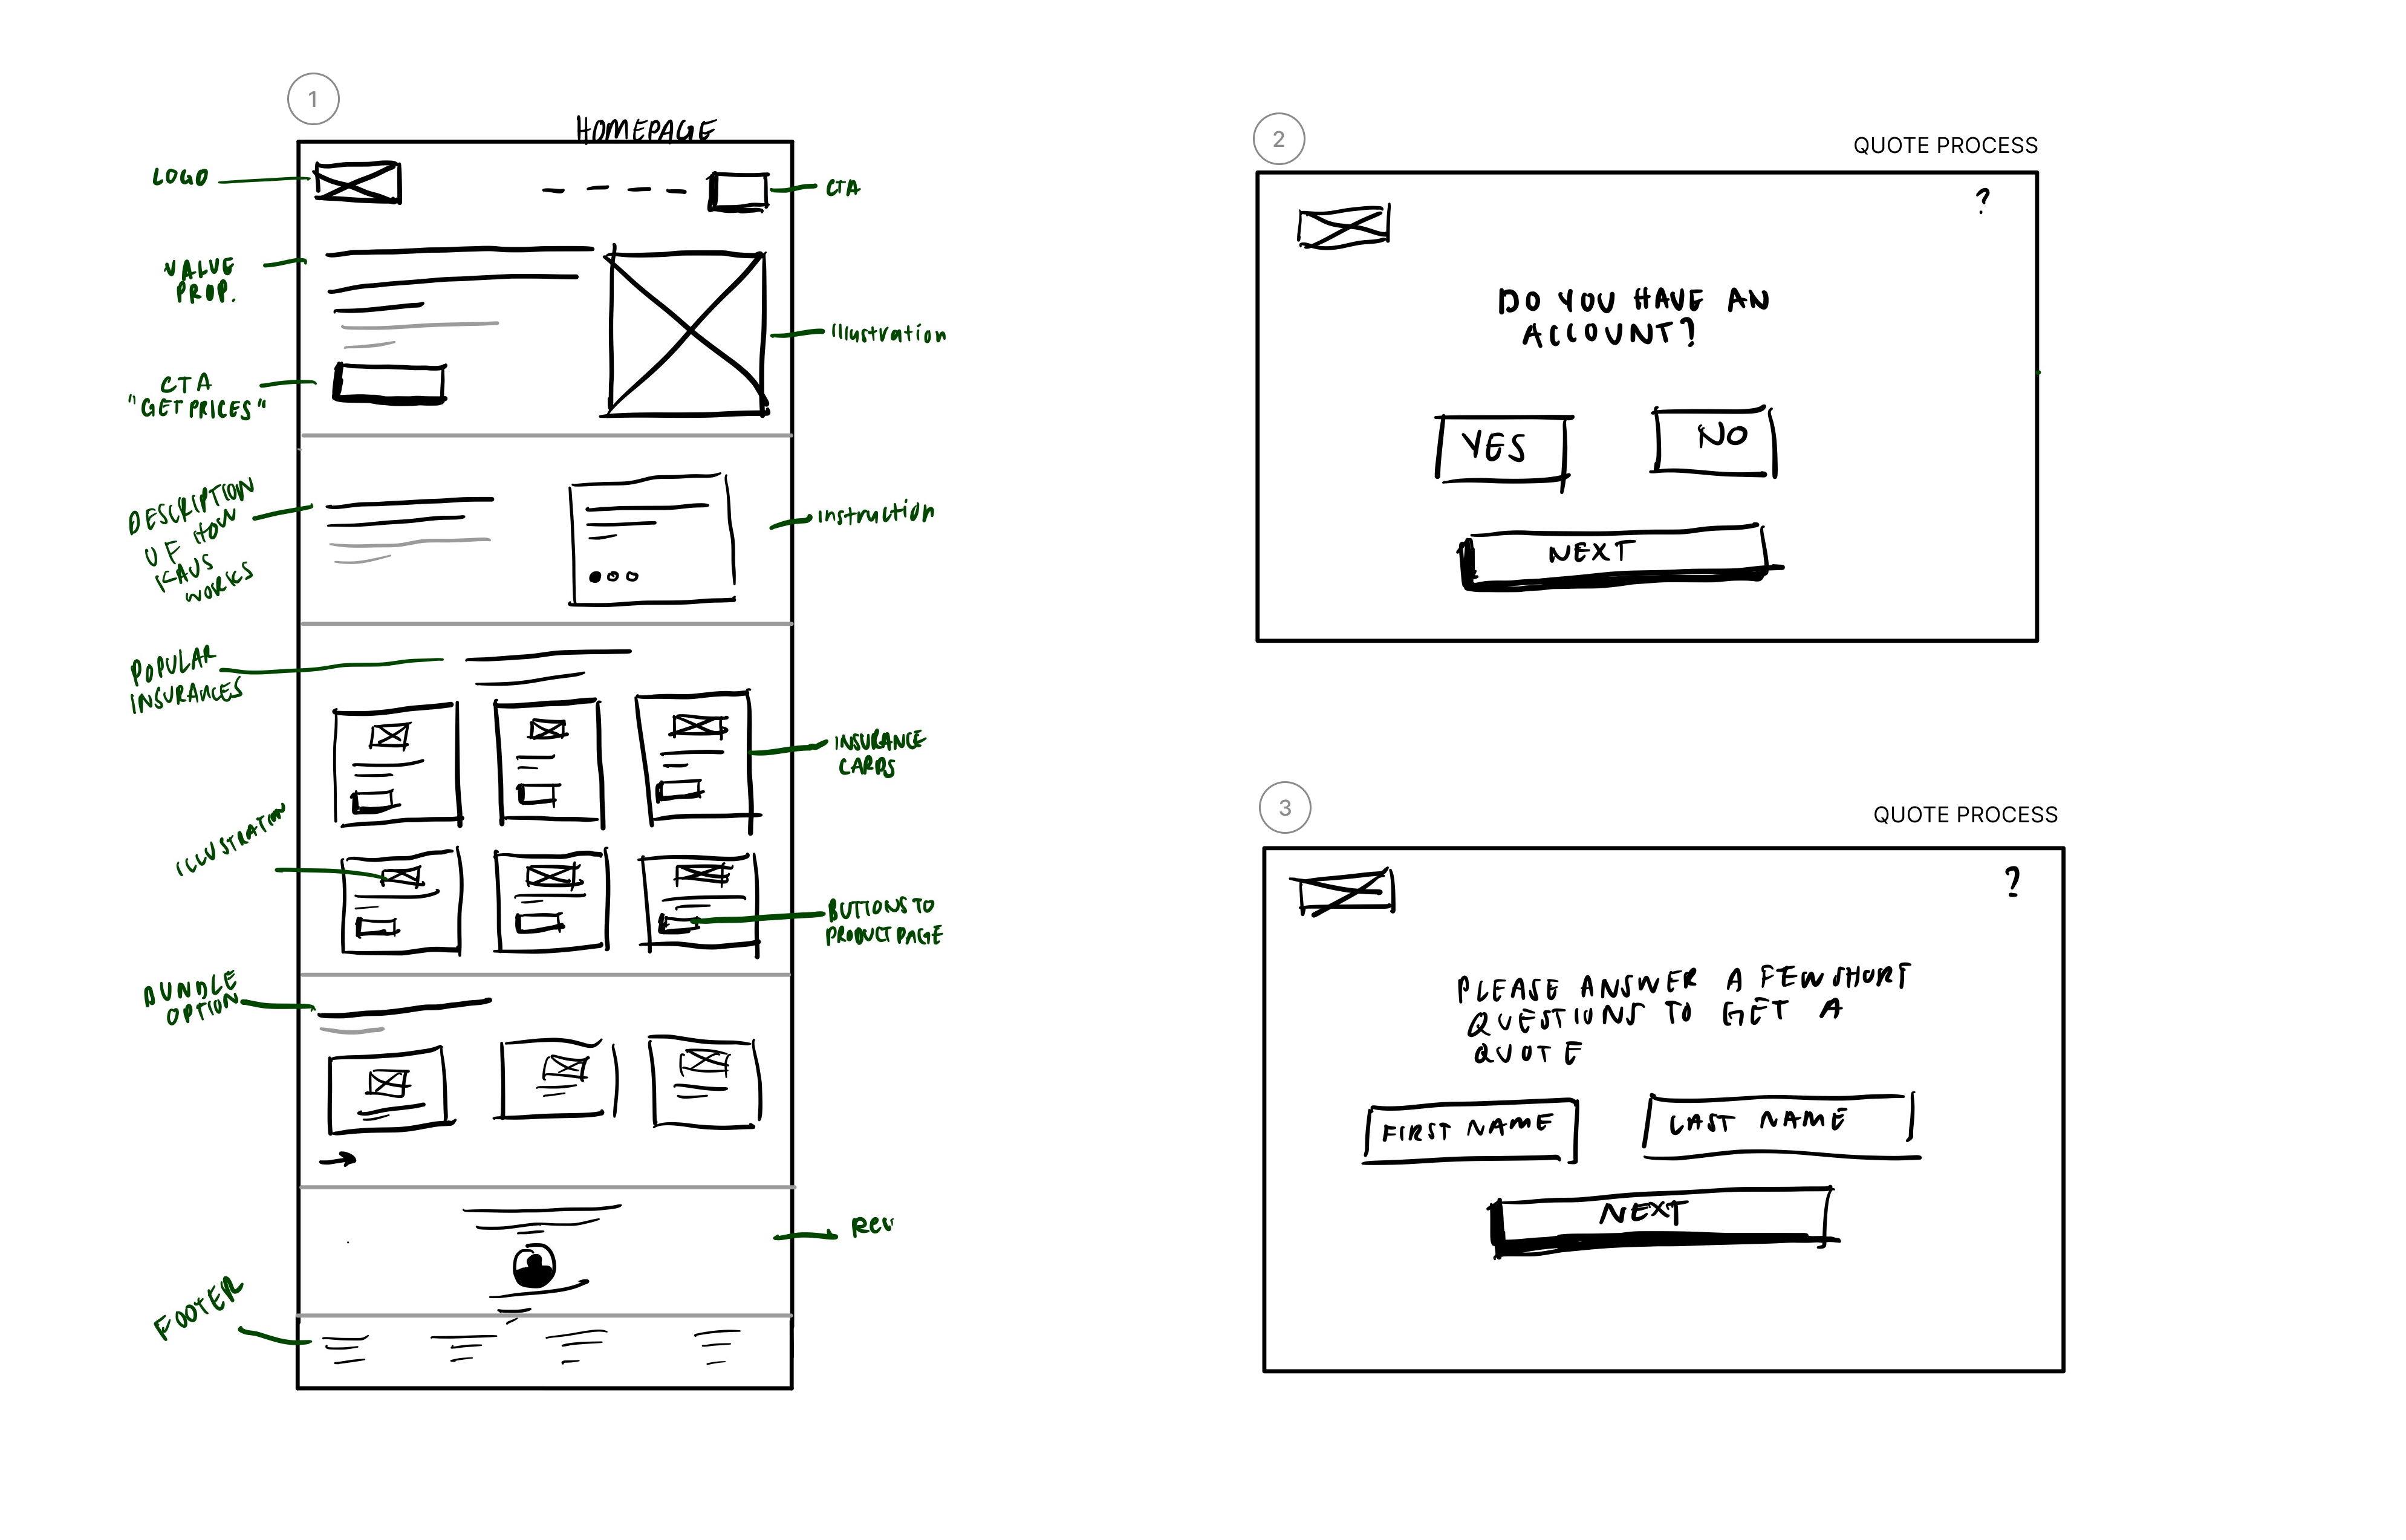 1
HOMEPAGE
LOGO
CTA
VALUE
PROP.
Illustration
CTA
"GET PRICES"
DESCRIPTION
OF HOW
KAUS
WORKS
Instruction
POPULAR
INSURANCES
INSURANCE
CARDS
ILLUSTRATION
BUTTONS TO
PRODUCT PAGE
BUNDLE
OPTION
REV
FOOTER
2
QUOTE PROCESS
?
DO YOU HAVE AN
ACCOUNT?
YES
NO
NEXT
3
QUOTE PROCESS
?
PLEASE ANSWER A FEW SHORT
QUESTIONS TO GET A
QUOTE
FIRST NAME
LAST NAME
NEXT